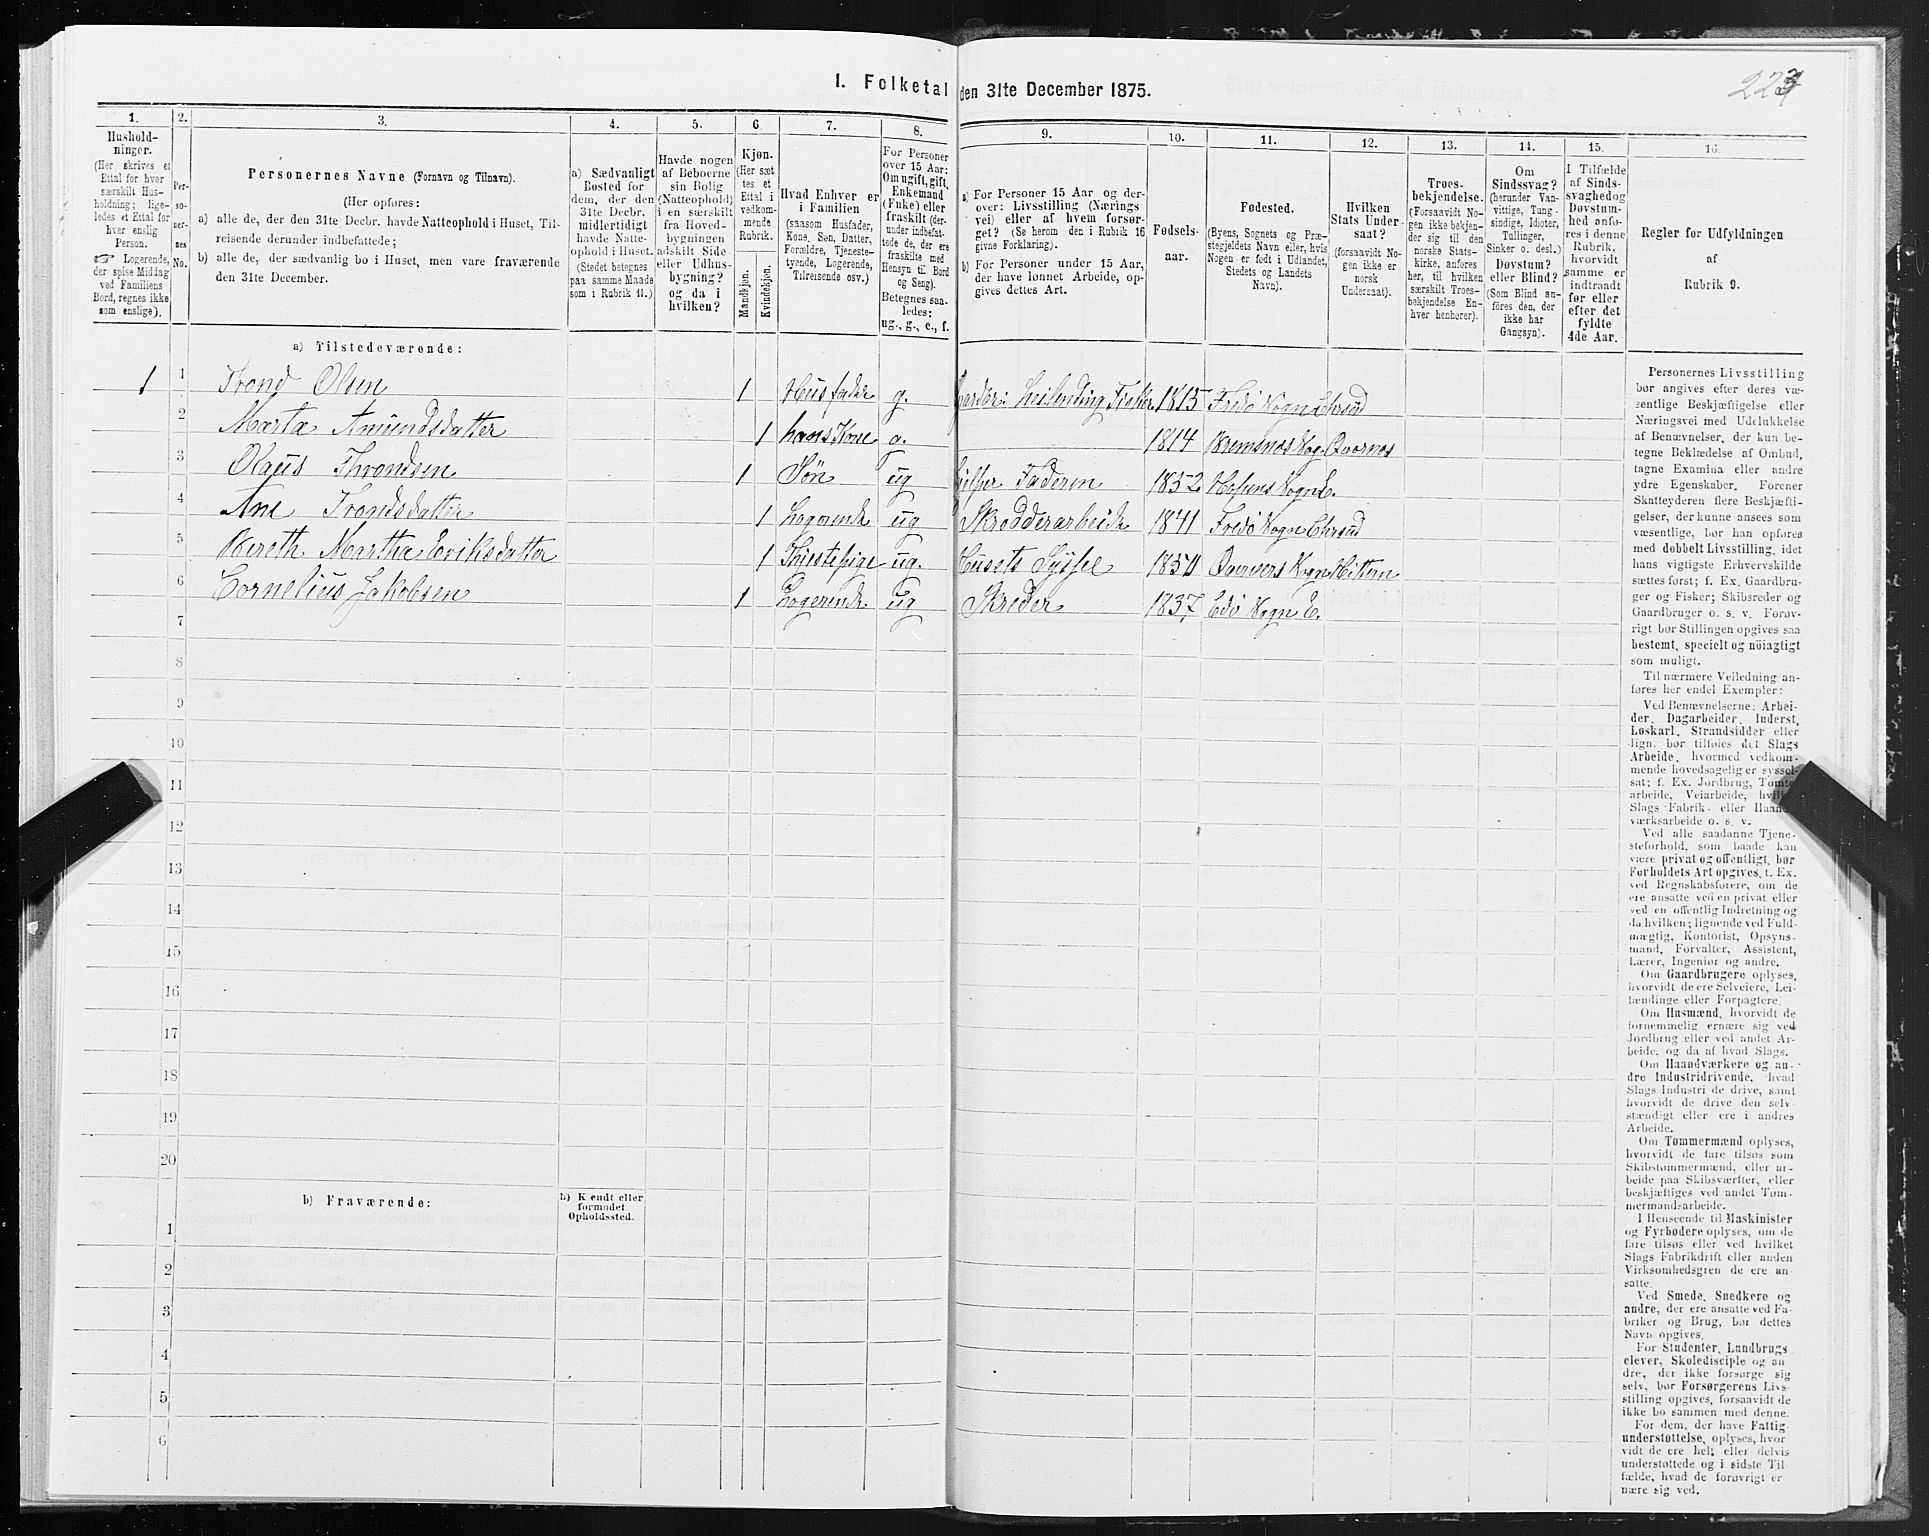 1. Folketal den 31te December 1875.
223
1.
Hushold-
ninger.
(Her skrives et
Ettal for hver
særskilt Hus-
holdning; lige-
ledes et Ettal for
hver enslig
Person.
☞ Logerende,
der spise Middag
ved Familiens
Bord, regnes ikke
som enslige).
2.
Per-
so-
ner-
nes
No.
3.
Personernes Navne (Fornavn og Tilnavn).
(Her opføres:
a) alle de, der den 31te Decbr. havde Natteophold i Huset, Til-
reisende derunder indbefattede;
b) alle de, der sædvanlig bo i Huset, men vare fraværende
den 31te December.
4.
a) Sædvanligt
Bosted for
dem, der den
31te Decbr.
midlertidigt
havde Natte-
ophold i Huset.
(Stedet betegnes
paa samme Maade
som i Rubrik 11.)
5.
Havde nogen
af Beboerne
sin Bolig
(Natteophold)
i en særskilt
fra Hoved-
bygningen
adskilt Side-
eller Udhus-
bygning?
og da i
hvilken?
6.
Kjøn.
(Her sæt
tes et
Ettal i
vedkom-
mende
Rubrik.
Mandkjøn.
Kvindekjøn.
7.
Hvad Enhver er
i Familien
(saasom Husfader,
Kone, Søn, Datter,
Forældre, Tjeneste-
tyende, Logerende,
Tilreisende osv.)
8.
For Personer
over 15 Aar:
Om ugift, gift,
Enkemand
(Enke) eller
fraskilt (der-
under indbefat-
tede de, der ere
fraskilte med
Hensyn til Bord
og Seng).
Betegnes saa-
ledes:
ug., g., e., f.
9.
a) For Personer 15 Aar og der-
over: Livsstilling (Nærings
vei) eller af hvem forsør-
get? (Se herom den i Rubrik 16
givne Forklaring).
b) For Personer under 15 Aar,
der have lønnet Arbeide, op-
gives dettes Art.
10.
Fødsels-
aar.
11.
Fødested.
(Byens, Sognets og Præ-
stegjeldets Navn eller, hvis
Nogen er født i Udlandet,
Stedets og Landets
Navn).
12.
Hvilken
Stats Under-
saat?
(forsaavidt No-
gen ikke er
norsk
Undersaat).
13.
Troes-
bekjendelse.
(Forsaavidt No-
gen ikke bekjen-
der sig til den
norske Stats-
kirke, anføres
her, til hvilken
særskilt Troes-
bekjendelse En-
hver henhører).
14.
Om
Sindssvag?
(herunder Van-
vittige, Tung-
sindige, Idioter,
Tullinger,
Sinker o. desl.)
Døvstum?
eller Blind?
(Som Blind an-
føres den, der
ikke har
Gangsyn).
15.
I Tilfælde
af Sinds-
svaghed og
Døvstum-
hed anfø-
res i denne
Rubrik,
hvorvidt
samme er
indtraadt
før eller
efter det
fyldte
4de Aar.
16.
Regler for Udfyldningen
af
Rubrik 9.
a) Tilstedeværende:
1 1 Trond Olsen 1 Husfader g. Gaardbr: Leilending Fisker 1815 Fredø Sogn Chrsud
2 Marta Amundsdatter 1 hans Kone g. 1814 Bremsnæs Sog. Qvernes
3 Olaus Throndsen 1 Søn ug hjelper Faderen 1852 Hopens Sogn E.
4 Ane Trondsdatter 1 Logerende ug Skrædderarbeide 1841 Fredø Sogn Chrsud
5 Bereth Martha Eriksdatter 1 Tjenestepige ug. Husets Syssel 1850 Qvenvers Sogn Hittern
6 Cornelius Jakobsen 1 Logerende ug Skreder 1837 Edø Sogn E.
7
8
9
10
11
12
13
14
15
16
17
18
19
20
b) Fraværende:
b) Kjendt eller
formodet
Opholdssted.
1
2
3
4
5
6
Personernes Livsstilling
bør angives efter deres væ-
sentlige Beskjæftigelse eller
Næringsvei med Udelukkelse
af Benævnelser, der kun be-
tegne Beklædelse af Ombud,
tagne Examina eller andre
ydre Egenskaber. Forener
Skatteyderen flere Beskjæfti-
gelser, der kunne ansees som
væsentlige, bør han opføres
med dobbelt Livsstilling, idet
hans vigtigste Erhvervskilde
sættes først; f. Ex. Gaardbru-
ger og Fisker; Skibsreder og
Gaardbruger o. s. v. Forøv-
rigt bør Stillingen opgives saa
bestemt, specielt og nöiagtigt
som muligt.
Til nærmere Veiledning an-
føres her endel Exempler:
Ved Benævnelserne: Arbei-
der, Dagarbeider, Inderst,
Løskarl, Strandsidder eller
lign. bør tilføies det Slags
Arbeide, hvormed vedkom-
mende hovedsagelig er syssel-
sat; f. Ex. Jordbrug, Tomte-
arbeide, Veiarbeide, hvilket
Slags Fabrik- eller Haand-
værksarbeide o. s. v.
Ved alle saadanne Tjene-
steforhold, som baade kan
være privat og offentligt, bør
Forholdets Art opgives, t. Ex.
ved Regnskabsførere, om de
ere ansatte ved en privat eller
ved en offentlig Indretning og
da hvilken; lignende ved Fuld-
mægtig, Kontorist, Opsyns-
mand, Forvalter, Assistent,
Lærer, Ingeniør og andre.
Om Gaardbrugere oplyses,
hvorvidt de ere Selveiere, Lei-
lændinge eller Forpagtere.
Om Husmænd, hvorvidt de
fornemmelig ernære sig ved
Jordbrug eller ved andet Ar-
beide, og da af hvad Slags.
Om Haandværkere og an-
dre Industridrivende, hvad
Slags Industri de drive, samt
hvorvidt de drive den selv-
stændigt eller ere i andres
Arbeide.
Om Tømmermænd oplyses,
hvorvidt de fare tilsøs som
Skibstømmermænd, eller ar-
beide paa Skibsværfter, eller
beskjæftiges ved andet Tøm-
mermandsarbeide.
I Henseende til Maskinister
og Fyrbødere oplyses, om de
fare tilsøs eller ved hvilket
Slags Fabrikdrift eller anden
Virksomhedsgren de ere an-
satte.
Ved Smede, Snedkere og
andre, der ere ansatte ved Fa-
briker og Brug, bør dettes
Navn opgives.
For Studenter, Landbrugs
elever, Skoledisciple og an-
dre, der ikke forsørge sig
selv, bør Forsørgerens Livs-
stilling opgives, forsaavidt de
ikke bo sammen med denne.
For dem, der have Fattig-
understøttelse, oplyses, hvor
vidt de ere helt eller delvis
understøttede og i sidste Til-
fælde, hvad de forøvrigt er
nære sig ved.